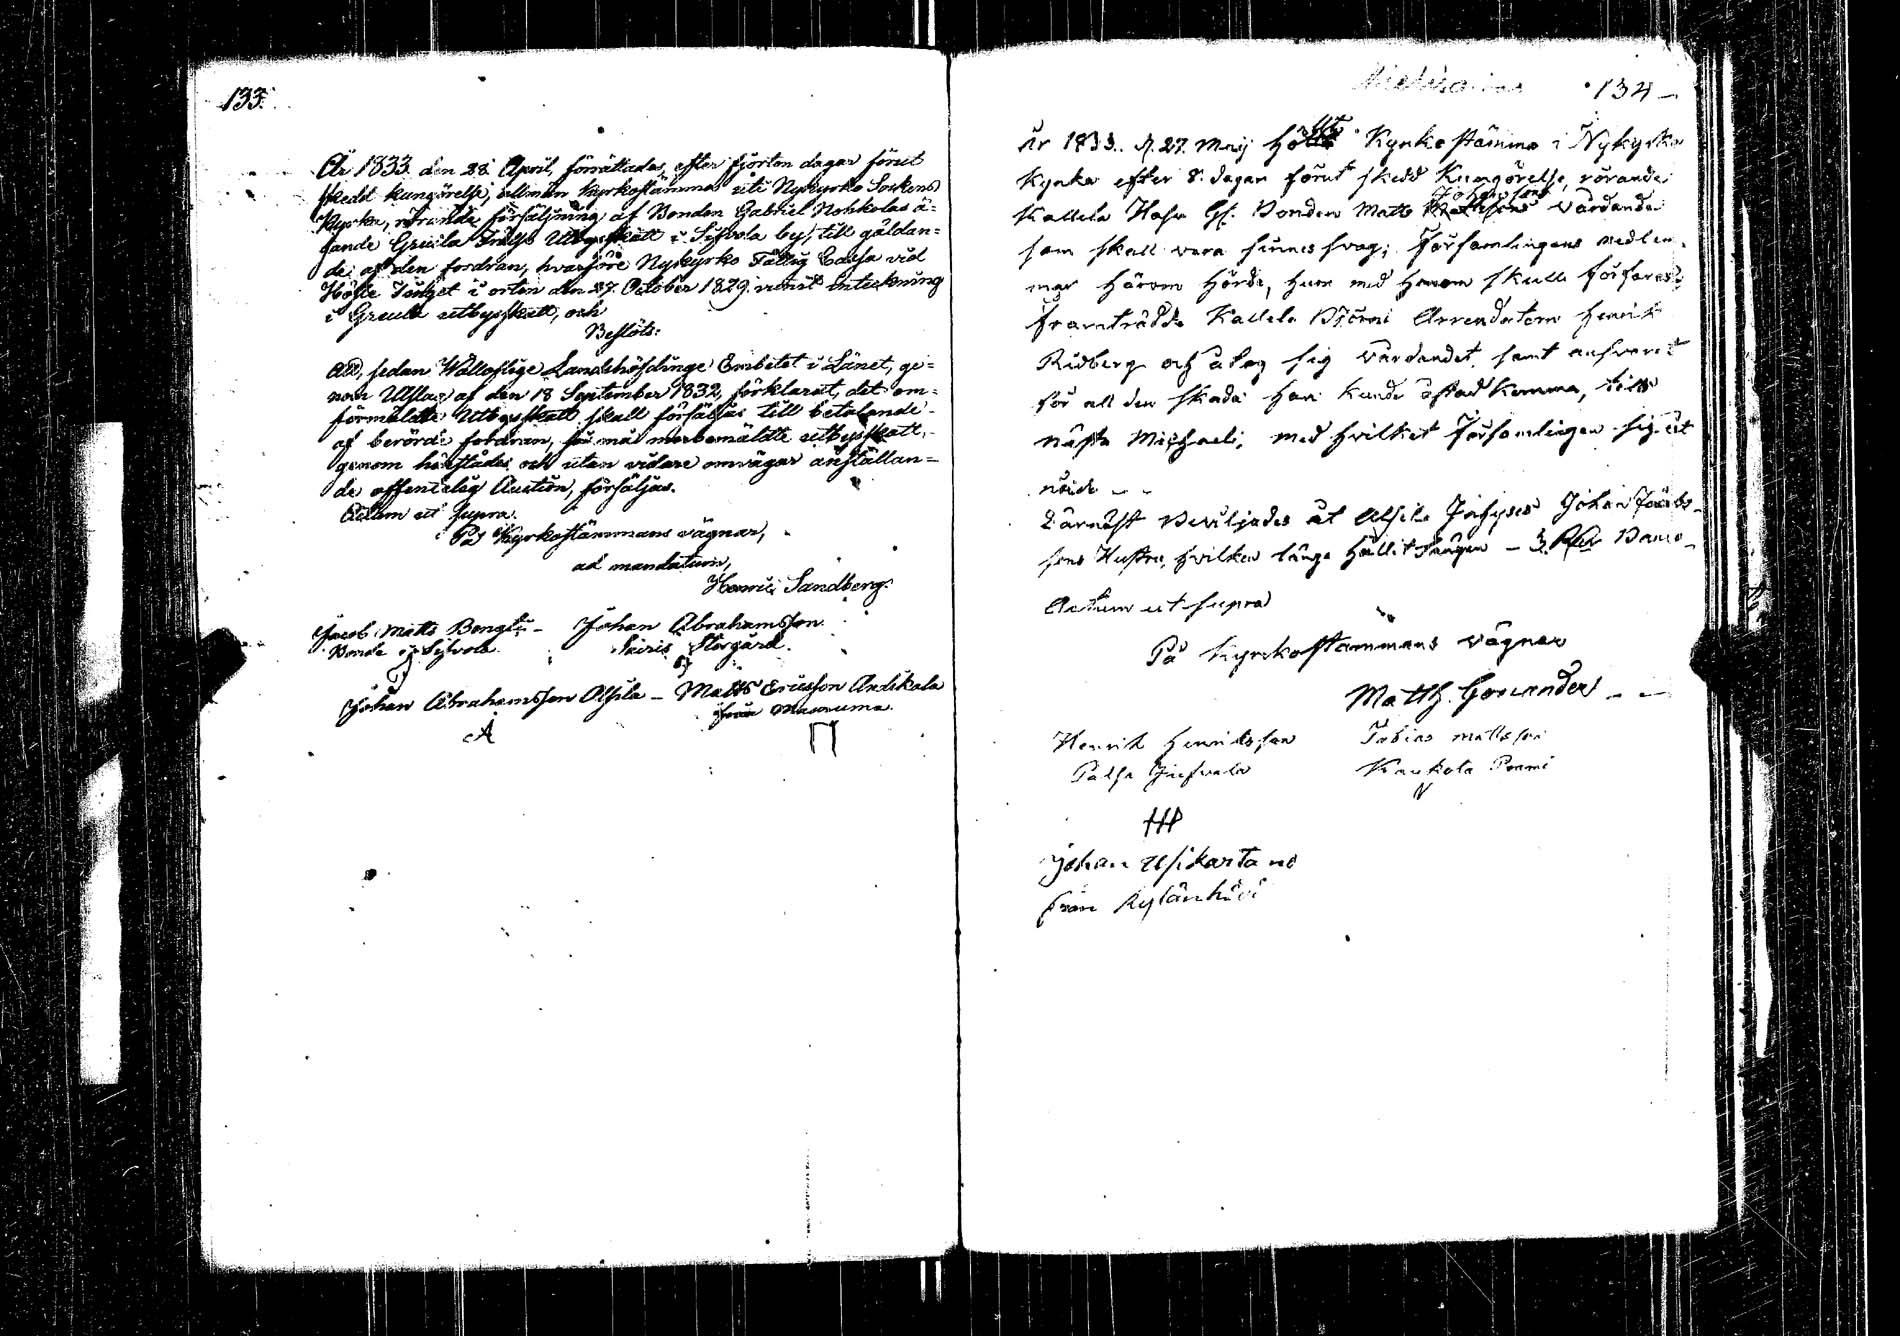 133.
År 1833 den 28 April, förrättades, efter fjorton dagar förut
skedd kungörelse, allmän Kyrkostämma uti Nykyrko Sockens
Kyrka, rörande försäljning af Bonden Gabriel Nohkolas ä-
gande Greula Frälse Utbysskatt i Sifvola by, till gäldan-
de af den fordran, hvarföre Nykyrko Fattig Cassa vid
Höste Tinget i orten den 27. October 1829 vunnit inteckning
i Greula utbysskatt, och
Beslöts:
Att, sedan Wälloflige Landshöfdinge Embetet i Länet, ge-
nom Utslag af den 18 September 1832, förklarat, det om-
förmäldte Utbysskatt skall försäljas till betalande
af berörde fordran, så må merbemäldte utbysskatt,
genom härstädes och utan vidare omvägar anställan-
de offentelig Auction, försäljas.
Actum ut supra.
På Kyrkostämmans vägnar,
ad mandatum,
Henric Sandberg.
Jacob Matts Bengts- Johan Abrahamsson
Bonde i Sifvola. Storgård.
Johan Abrahamsson Alsila - Matts Ericsson Andikala
från
134
År 1833. d. 27. Maij hölts Kyrkostämma i Nykyrka
Kyrka efter 8. dagar förut skedd Kungörelse, rörande
Johanssons
Kallela Bonden Matts vårdande
som skall vara sinnes svag; Församlingens medlem-
mar härom hörde, huru med honom skulle förfaras;
framträdde Kallela Arrendatorn Henrik
Ridberg och åtog sig vårdandet samt ansvaret
för all den skada han kunde åstadkomma, till
nästa Michaeli; med hvilket Församlingen sig åt
nöide
Därnäst beviljades åt Alsila Johan Jacobs-
sons Hustru, hvilken länge hållit Sängen - 3 Banco-
Actum ut supra
På Kyrkostämmans vägnar
Matth.
Henrik Henriksson Tobias Mattsson
Kaukola
HP
Johan Usikartano
från Kylänhiisi